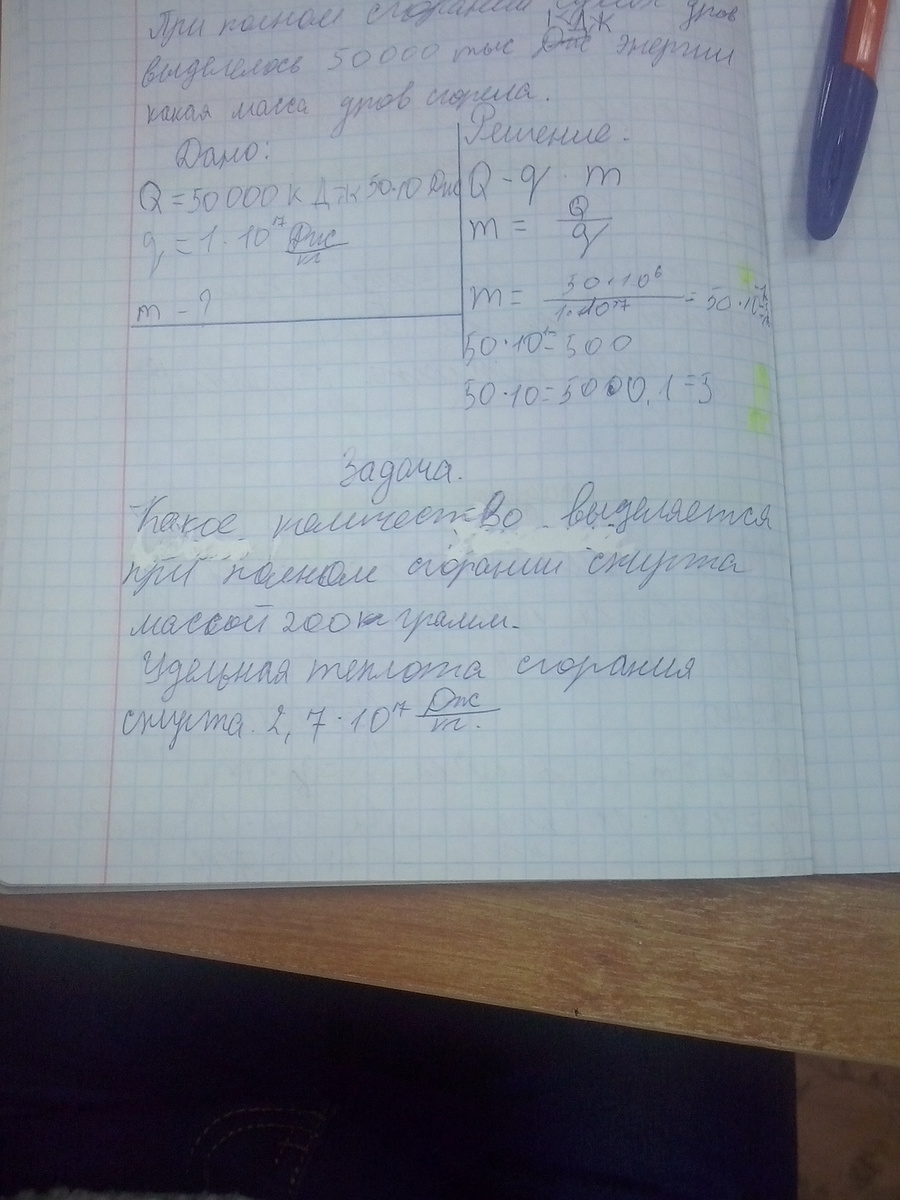 При полном сгорании сухих дров
кДж
выделелось 50000 тыс Дж энергии
какая масса дров сгорела.
Дано:
Решение.
Q = 50000 к Дж 50·10 Дж
q = 1·10⁷ Дж/кг
m - ?
Q - q · m
m = Q/q
m = 50·10⁶/1·10⁷ = 50·10
50·10 = 500
50·10 = 50 0,1 = 5
Задача.
Какое количество выделяется
при полном сгорании спирта
массой 200 к грамм.
Удельная теплота сгорания
спирта. 2,7·10⁷ Дж/кг.